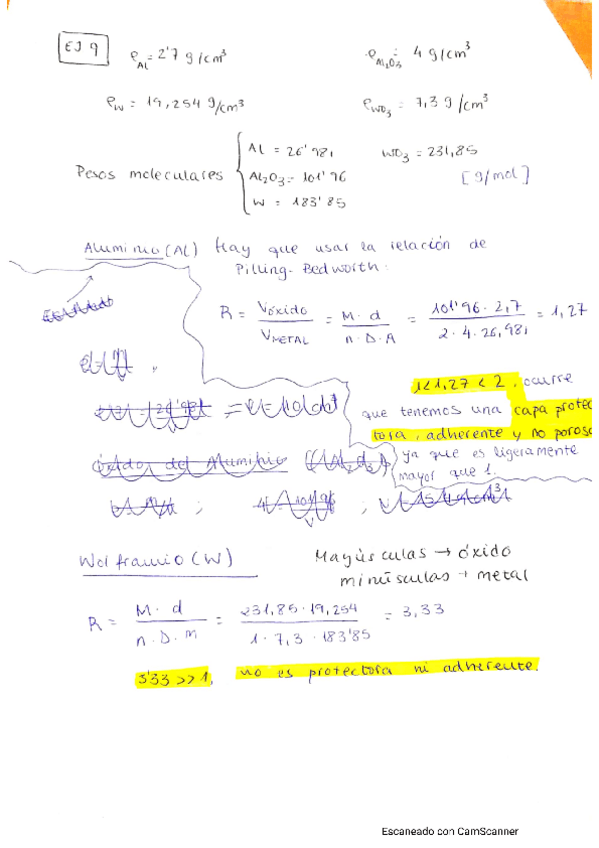 EJ 9
ρAl = 2'7 g/cm³
ρAl₂O₃ = 4 g/cm³
ρW = 19,254 g/cm³
ρWO₃ = 7,3 g/cm³
Pesos moleculares
Al = 26'981
WO₃ = 231,85
Al₂O₃ = 101'96
[g/mol]
W = 183'85
Aluminio (Al) Hay que usar la relación de
Pilling-Bedworth:
R = Vóxido / VMETAL = M · d / n · D · A = 101'96 · 2,7 / 2 · 4 · 26,981 = 1,27
1<1,27 < 2, ocurre
que tenemos una capa protec
tora, adherente y no porosa
ya que es ligeramente
mayor que 1.
Óxido del Aluminio (Al₂O₃)
Wolframio (W)
Mayúsculas → óxido
minúsculas → metal
R = M · d / n · D · m = 231,85 · 19,254 / 1 · 7,3 · 183'85 = 3,33
3'33 >> 1, no es protectora ni adherente.
Escaneado con CamScanner